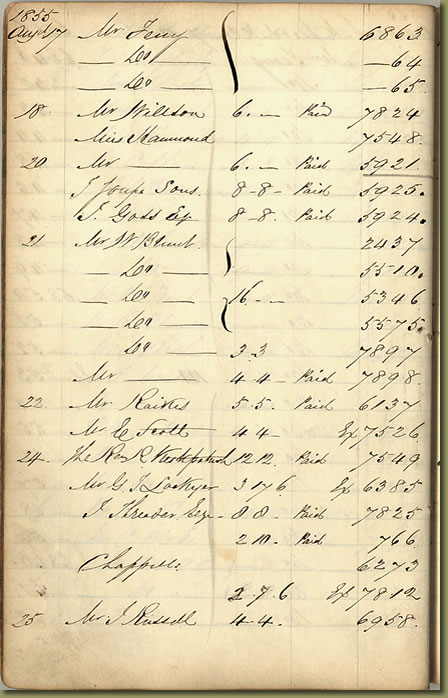 1855
Augt 17 Mr Terry 6863
— Do — — 64
— Do — — 65.
18. Mr Willson 6. — Paid 7824
Miss Hammond 7548.
20 Mr — 6. — Paid 5921.
J Sons. 8-8- Paid 5925.
J. Goss Eq 8-8. Paid 5924.
21 Mr W Blunt. 2437
— Do — 5510.
— Do — 16. - - 5346
— Do — 5575.
Do — 3.3 7897
Mr — 4 4 - Paid 7898.
22. Mr Raikes 5 5. Paid 6137
Mr E Scott 4 4 - Ex 7526
24. The Rev R 12 12. Paid 7549
Mr G. J Lockyer 3 17 6 Ex 6385
J Threader Esq - 8 8 - Paid 7825
2 10. Paid 766
Chappelle 6273
2. 7. 6 Ex 7812
25 Mr J Russell 4. 4. 6958.